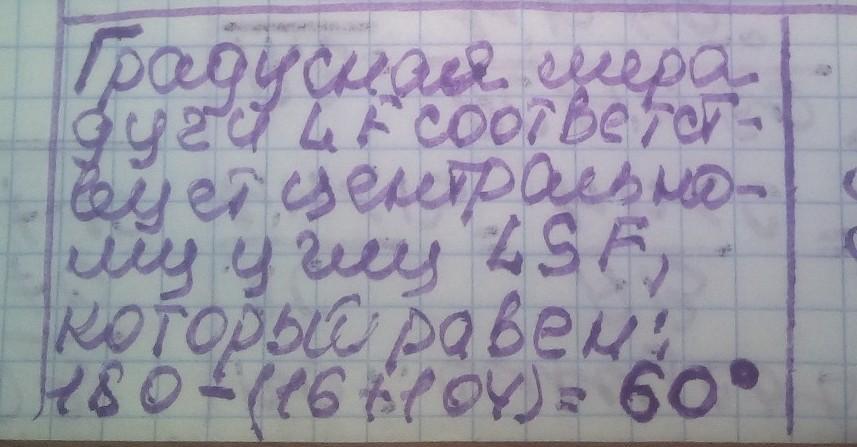 Градусная мера
дуги LF соответст-
вует центрально-
му углу LSF,
который равен:
180-(16+104)= 60°